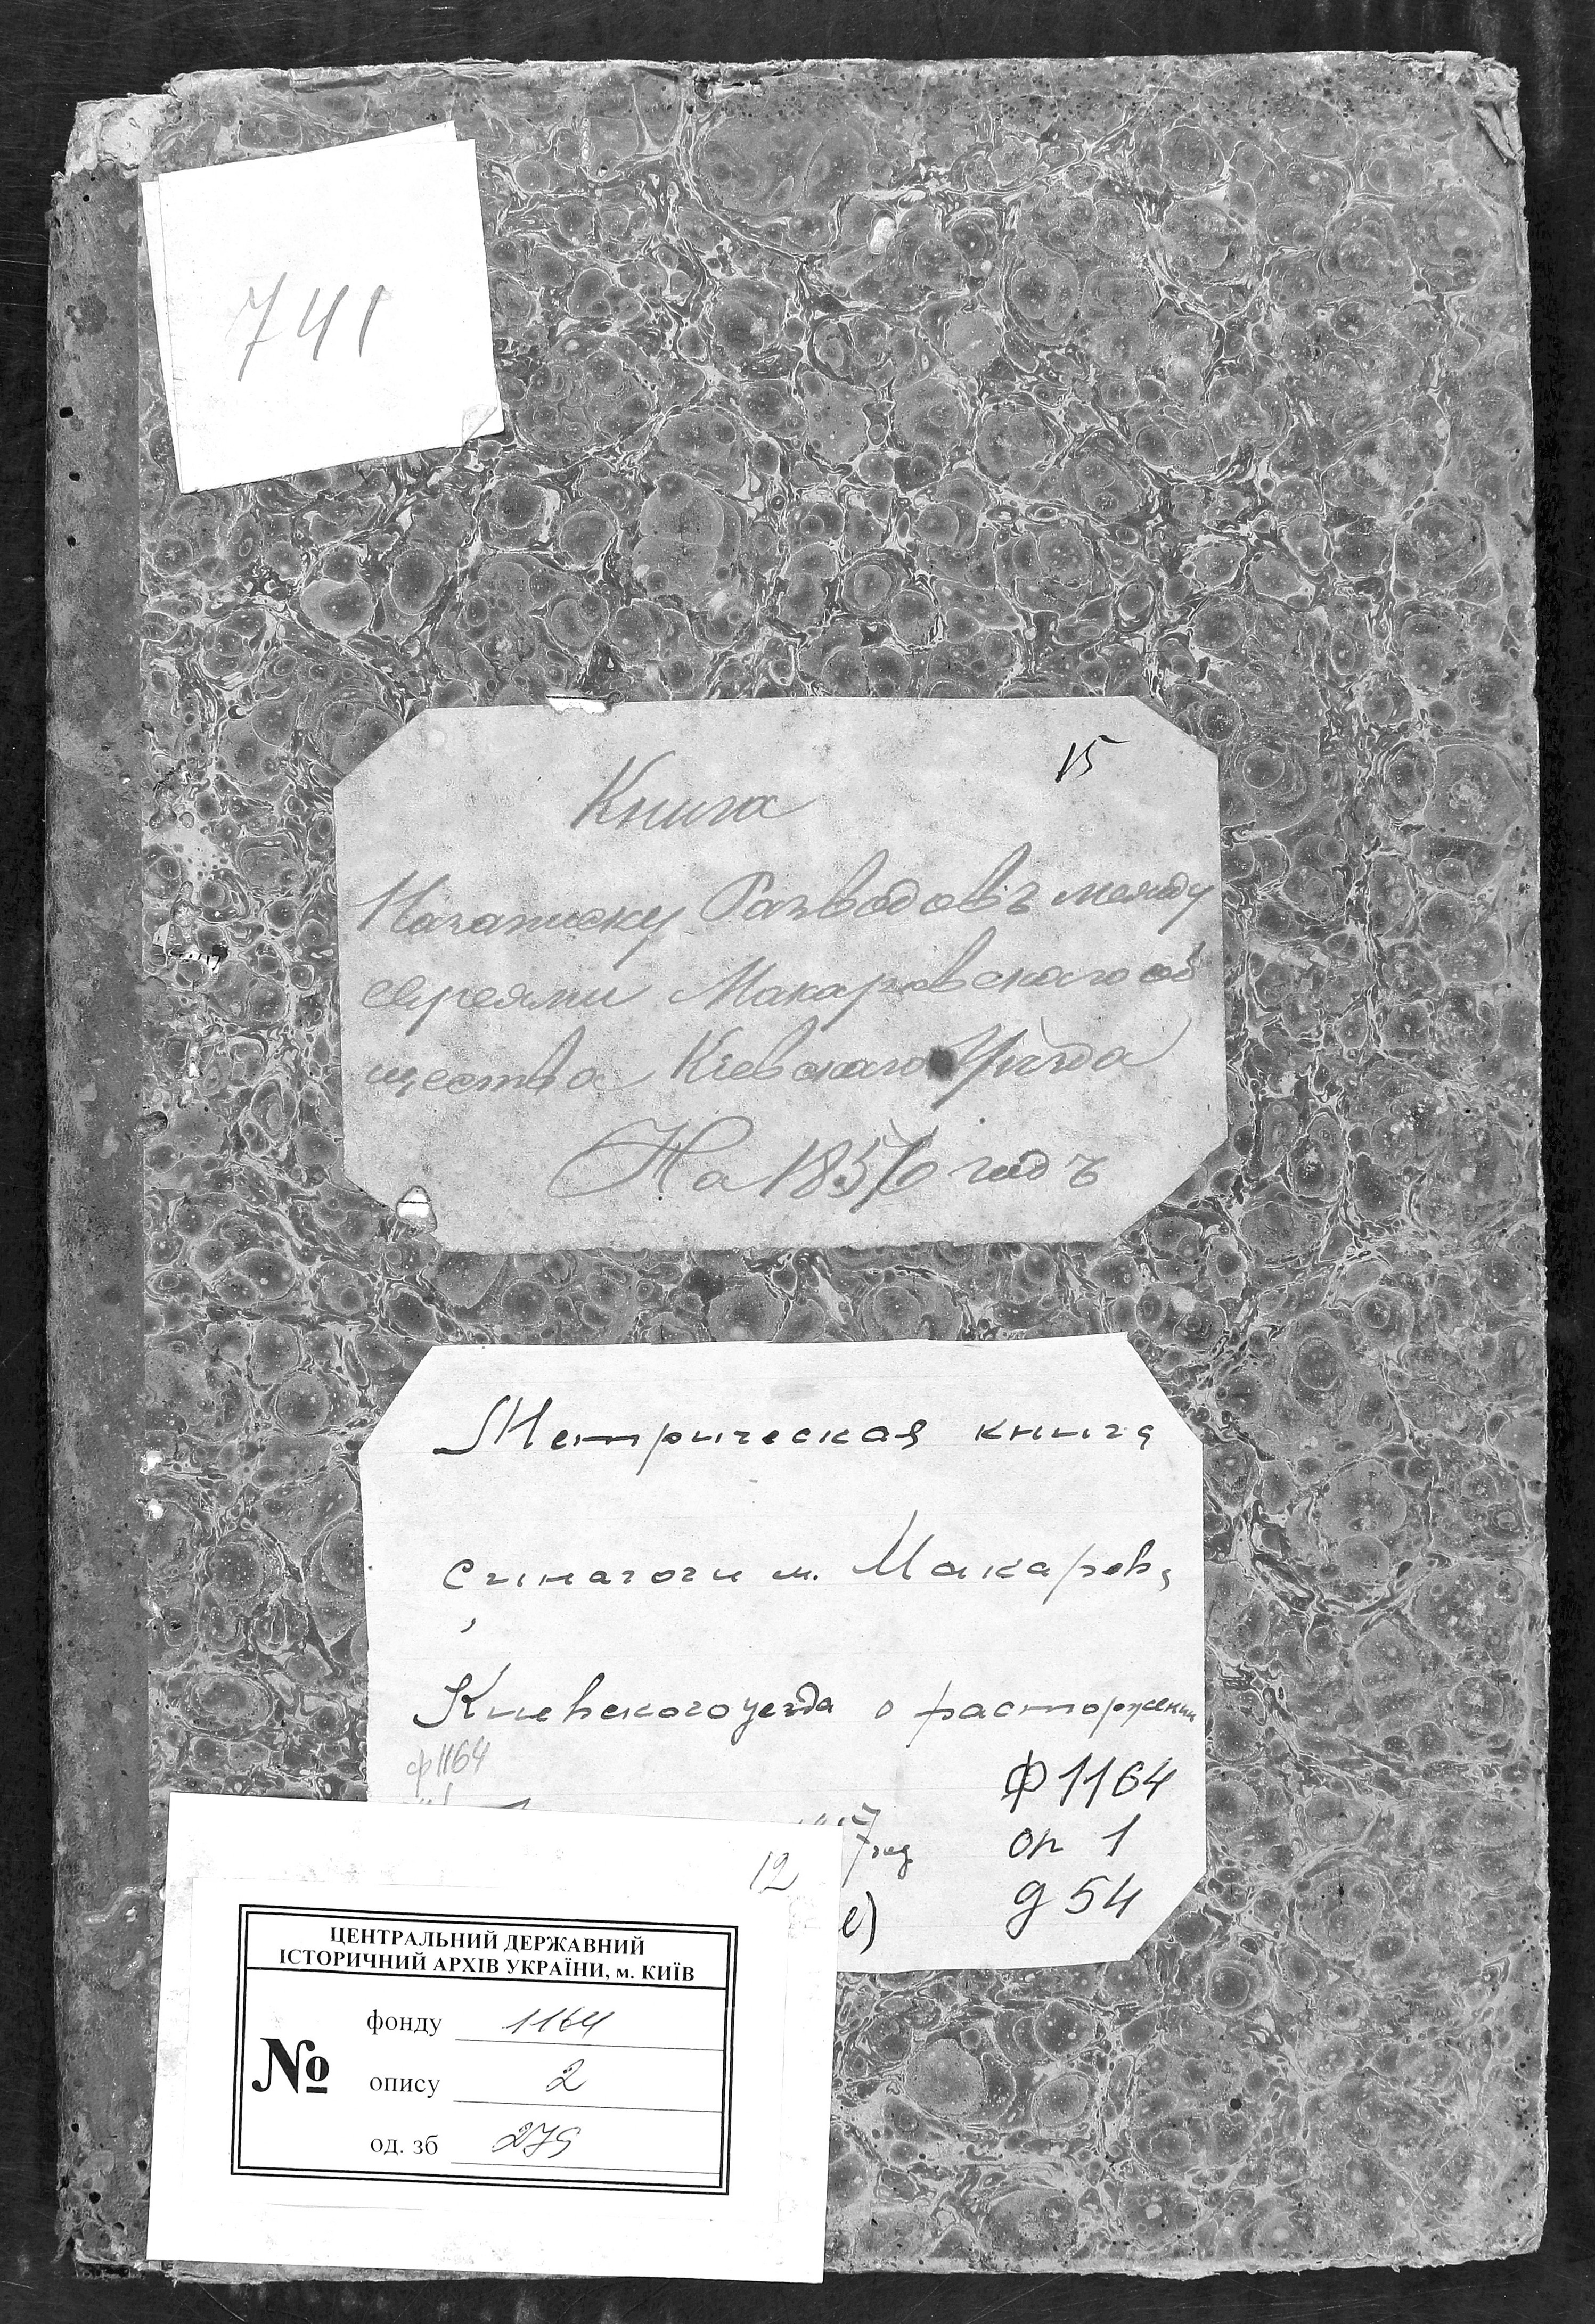 741
15
Книга
Назаписку Разводовъ между
евреями Макаровскаго об
щества Кіевскаго Уѣзда
На 1856 годъ
Метрическая книга
синагоги м. Макаров,
Киевского уезда о расторжении
ф 1164
ф 1164
7 год
оп 1
е)
д 54
12
ЦЕНТРАЛЬНИЙ ДЕРЖАВНИЙ
ІСТОРИЧНИЙ АРХІВ УКРАЇНИ, м. КИЇВ
№
фонду 1164
опису 2
од. зб 279